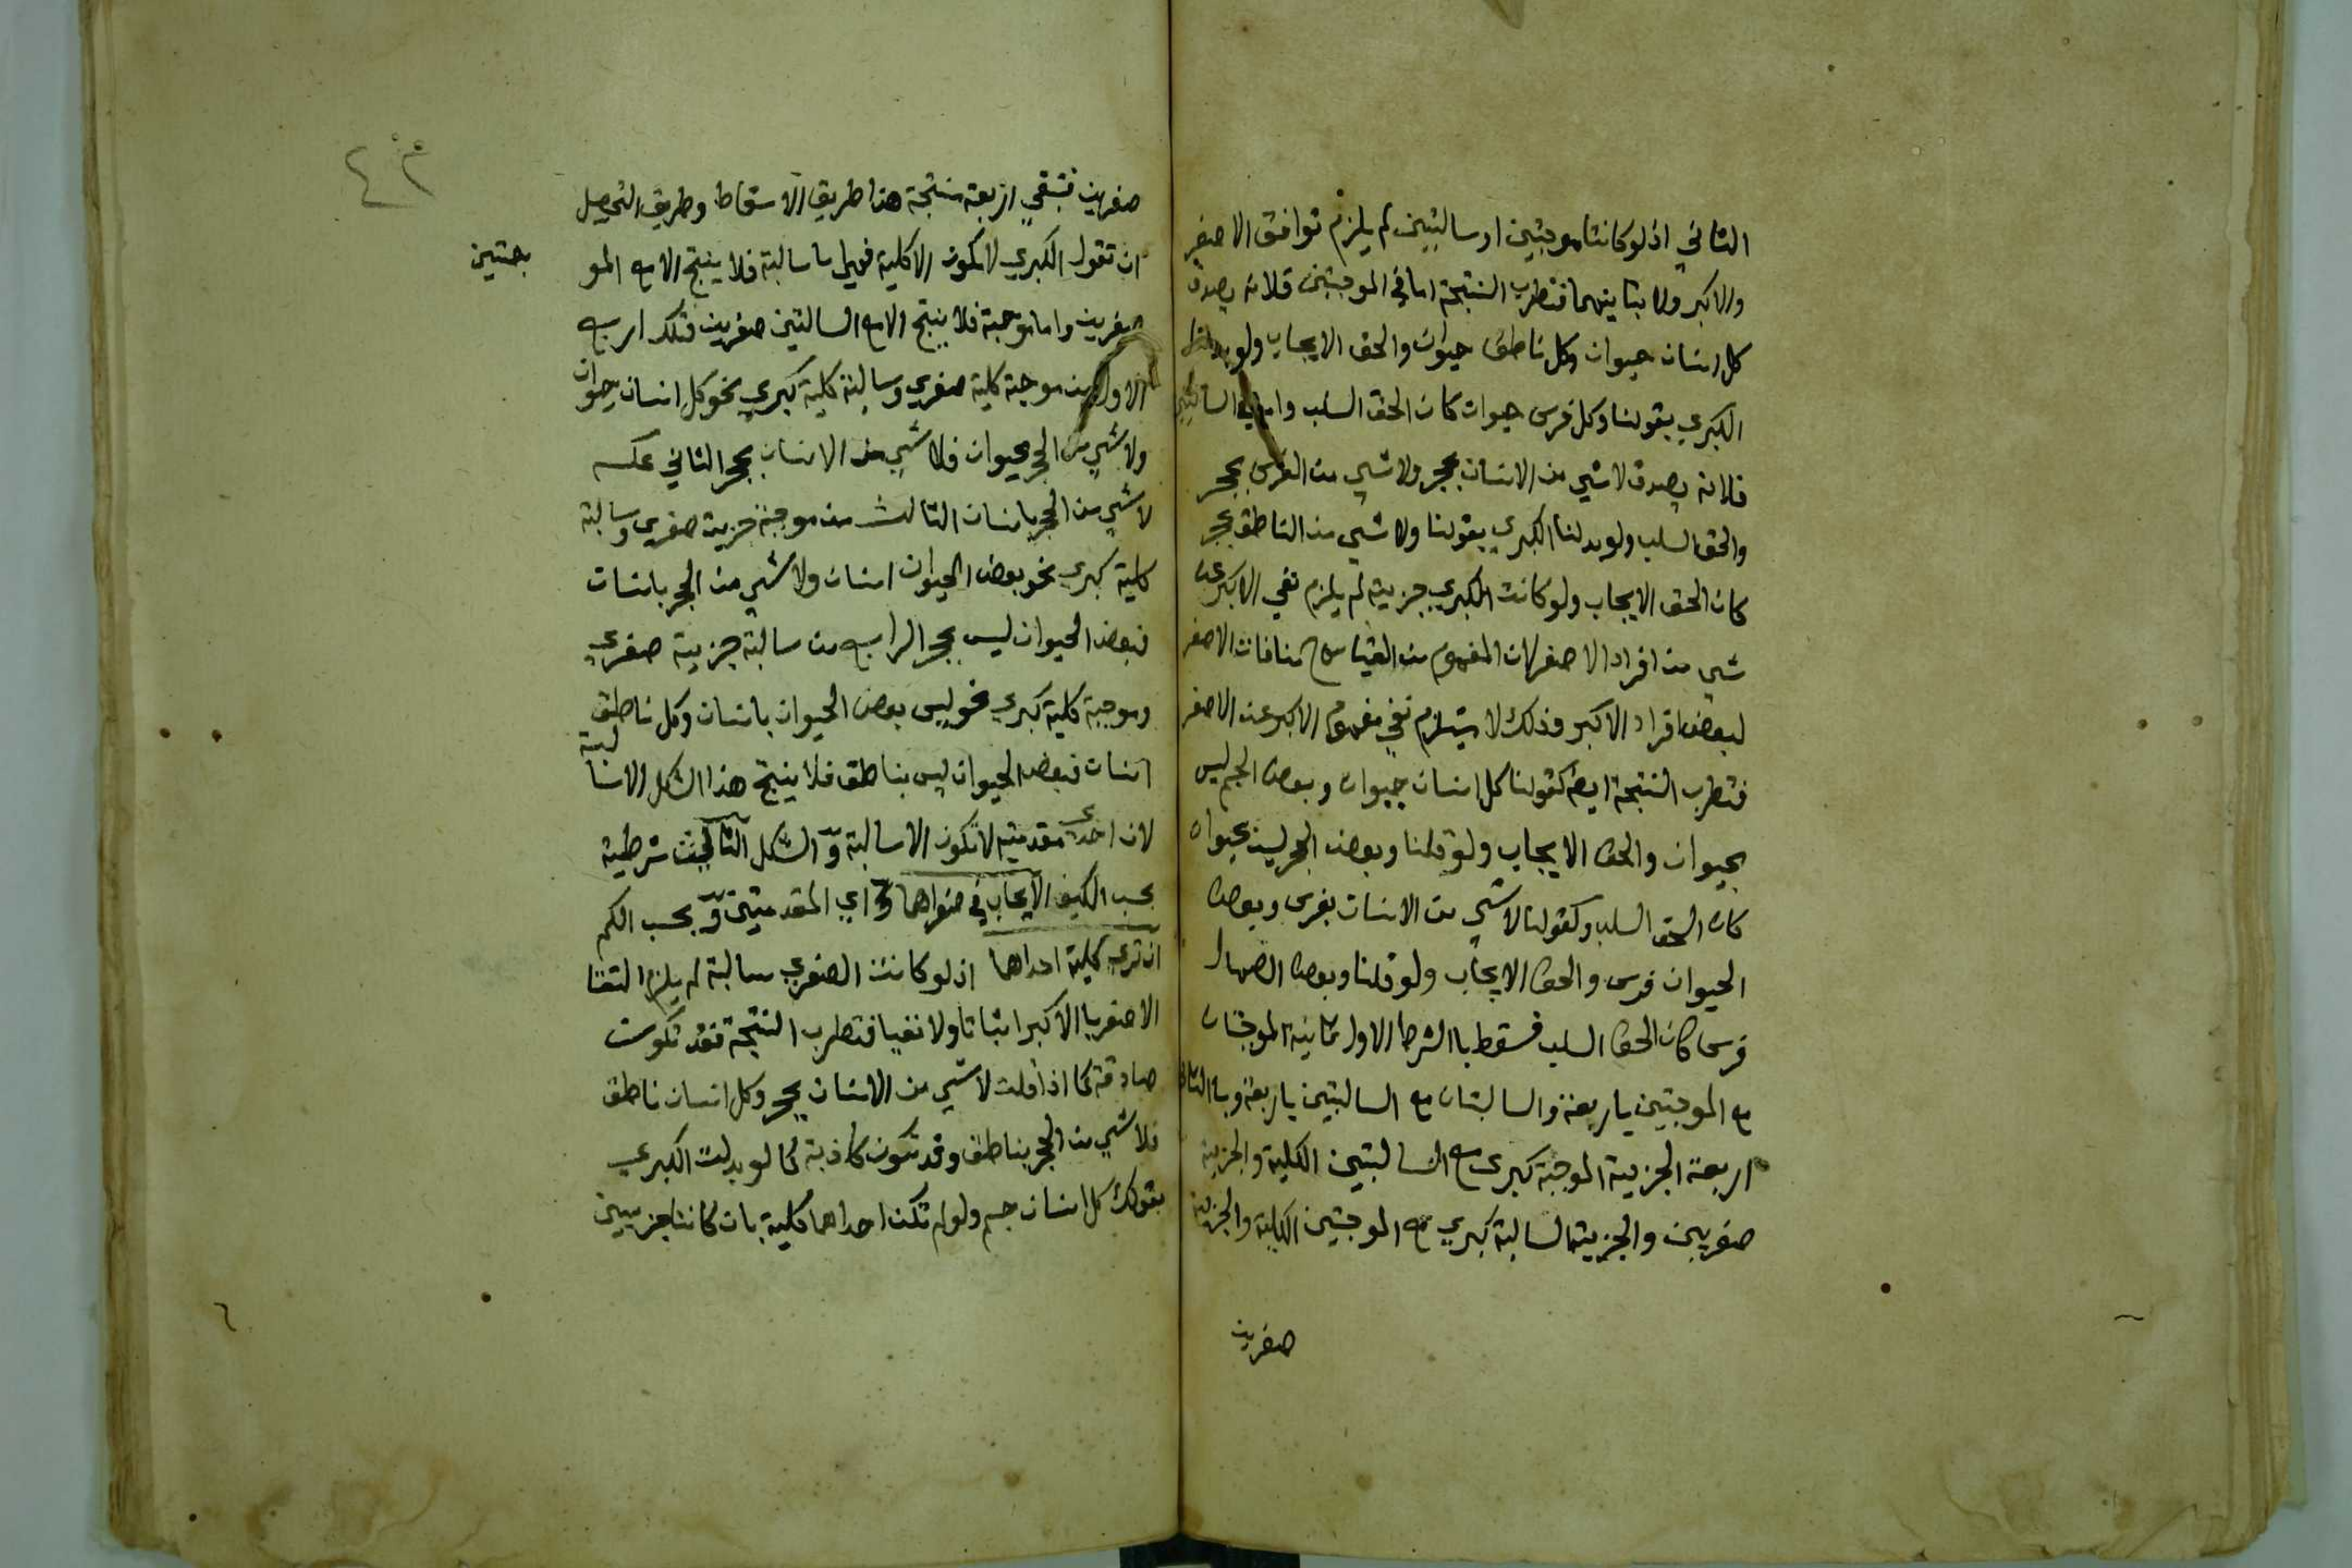 الثاني اذ لو كانتا موجبتين او سالبتين لم يلزم توافق الاصغر
والاكبر ولا تباينهما فتضطرب النتيجة اما في الموجبتين فلانه يصدق
كل انسان حيوان وكل ناطق حيوان والحق الايجاب ولو بدلنا
الكبري بقولنا وكل فرس حيوان كان الحق السلب واما في السالبتين
فلانه يصدق لا شي من الانسان بحجر ولا شي من الفرس بحجر
والحق السلب ولو بدلنا الكبري بقولنا ولا شي من الناطق بحجر
كان الحق الايجاب ولو كانت الكبري جزيية لم يلزم نفي الاكبر عن
شي من افراد الاصغر لان المفهوم من القياس ح منافات الاصغر
لبعض افراد الاكبر وذلك لا يستلزم نفي مفهوم الاكبر عن الاصغر
فتضطرب النتيجة ايضا كقولنا كل انسان حيوان وبعض الجسم ليس
بحيوان والحق الايجاب ولو قلنا وبعض الحجر ليس بحيوان
كان الحق السلب وكقولنا لا شي من الانسان بفرس وبعض
الحيوان فرس والحق الايجاب ولو قلنا وبعض الصهال
فرس كان الحق السلب فسقط بالشرط الاول ثمانية الموجبتان
مع الموجبتين باربعة والسالبتان مع السالبتين باربعة وبالثاني
اربعة الجزيية الموجبة كبرى مع السالبتين الكلية والجزيية
صغريين والجزيية السالبة كبري مع الموجبتين الكلية والجزيية
صغريين
٤٣
صغريين فتبقي اربعة منتجة هذا طريق الاسقاط وطريق التحصيل
ان تقول الكبري لا تكون الا كلية فهي اما سالبة فلا ينتج الا مع المو
جبتين
صغريين واما موجبة فلا ينتج الا مع السالبتين صغريين فتلك اربع
الاول من موجبة كلية صغري وسالبة كلية كبري نحو كل انسان حيوان
ولا شي من الحجر بحيوان فلا شي من الانسان بحجر الثاني عكسه
لا شي من الحجر بانسان الثالث من موجبة جزيية صغري وسالبة
كلية كبري نحو بعض الحيوان انسان ولا شي من الحجر بانسان
فبعض الحيوان ليس بحجر الرابع من سالبة جزيية صغري
وموجبة كلية كبري نحو ليس بعض الحيوان بانسان وكل ناطق
انسان فبعض الحيوان ليس بناطق فلا ينتج هذا الشكل الا سالبة
لان احدى مقدمتيه لا تكون الا سالبة و الشكل الثالث شرطيه
بحسب الكيف الايجاب في صغراهما اي المقدمتين و بحسب الكم
ان تري كلية احداهما اذ لو كانت الصغري سالبة لم يلزم التقا
الاصغر بالاكبر اثباتا ولا نفيا فتضطرب النتيجة فقد تكون
صادقة كما اذا قلت لا شي من الانسان بحجر وكل انسان ناطق
فلا شي من الحجر بناطق وقد تكون كاذبة كما لو بدلت الكبري
بقولك كل انسان جسم ولو لم تكن احداهما كلية بان كانتا جزييتين